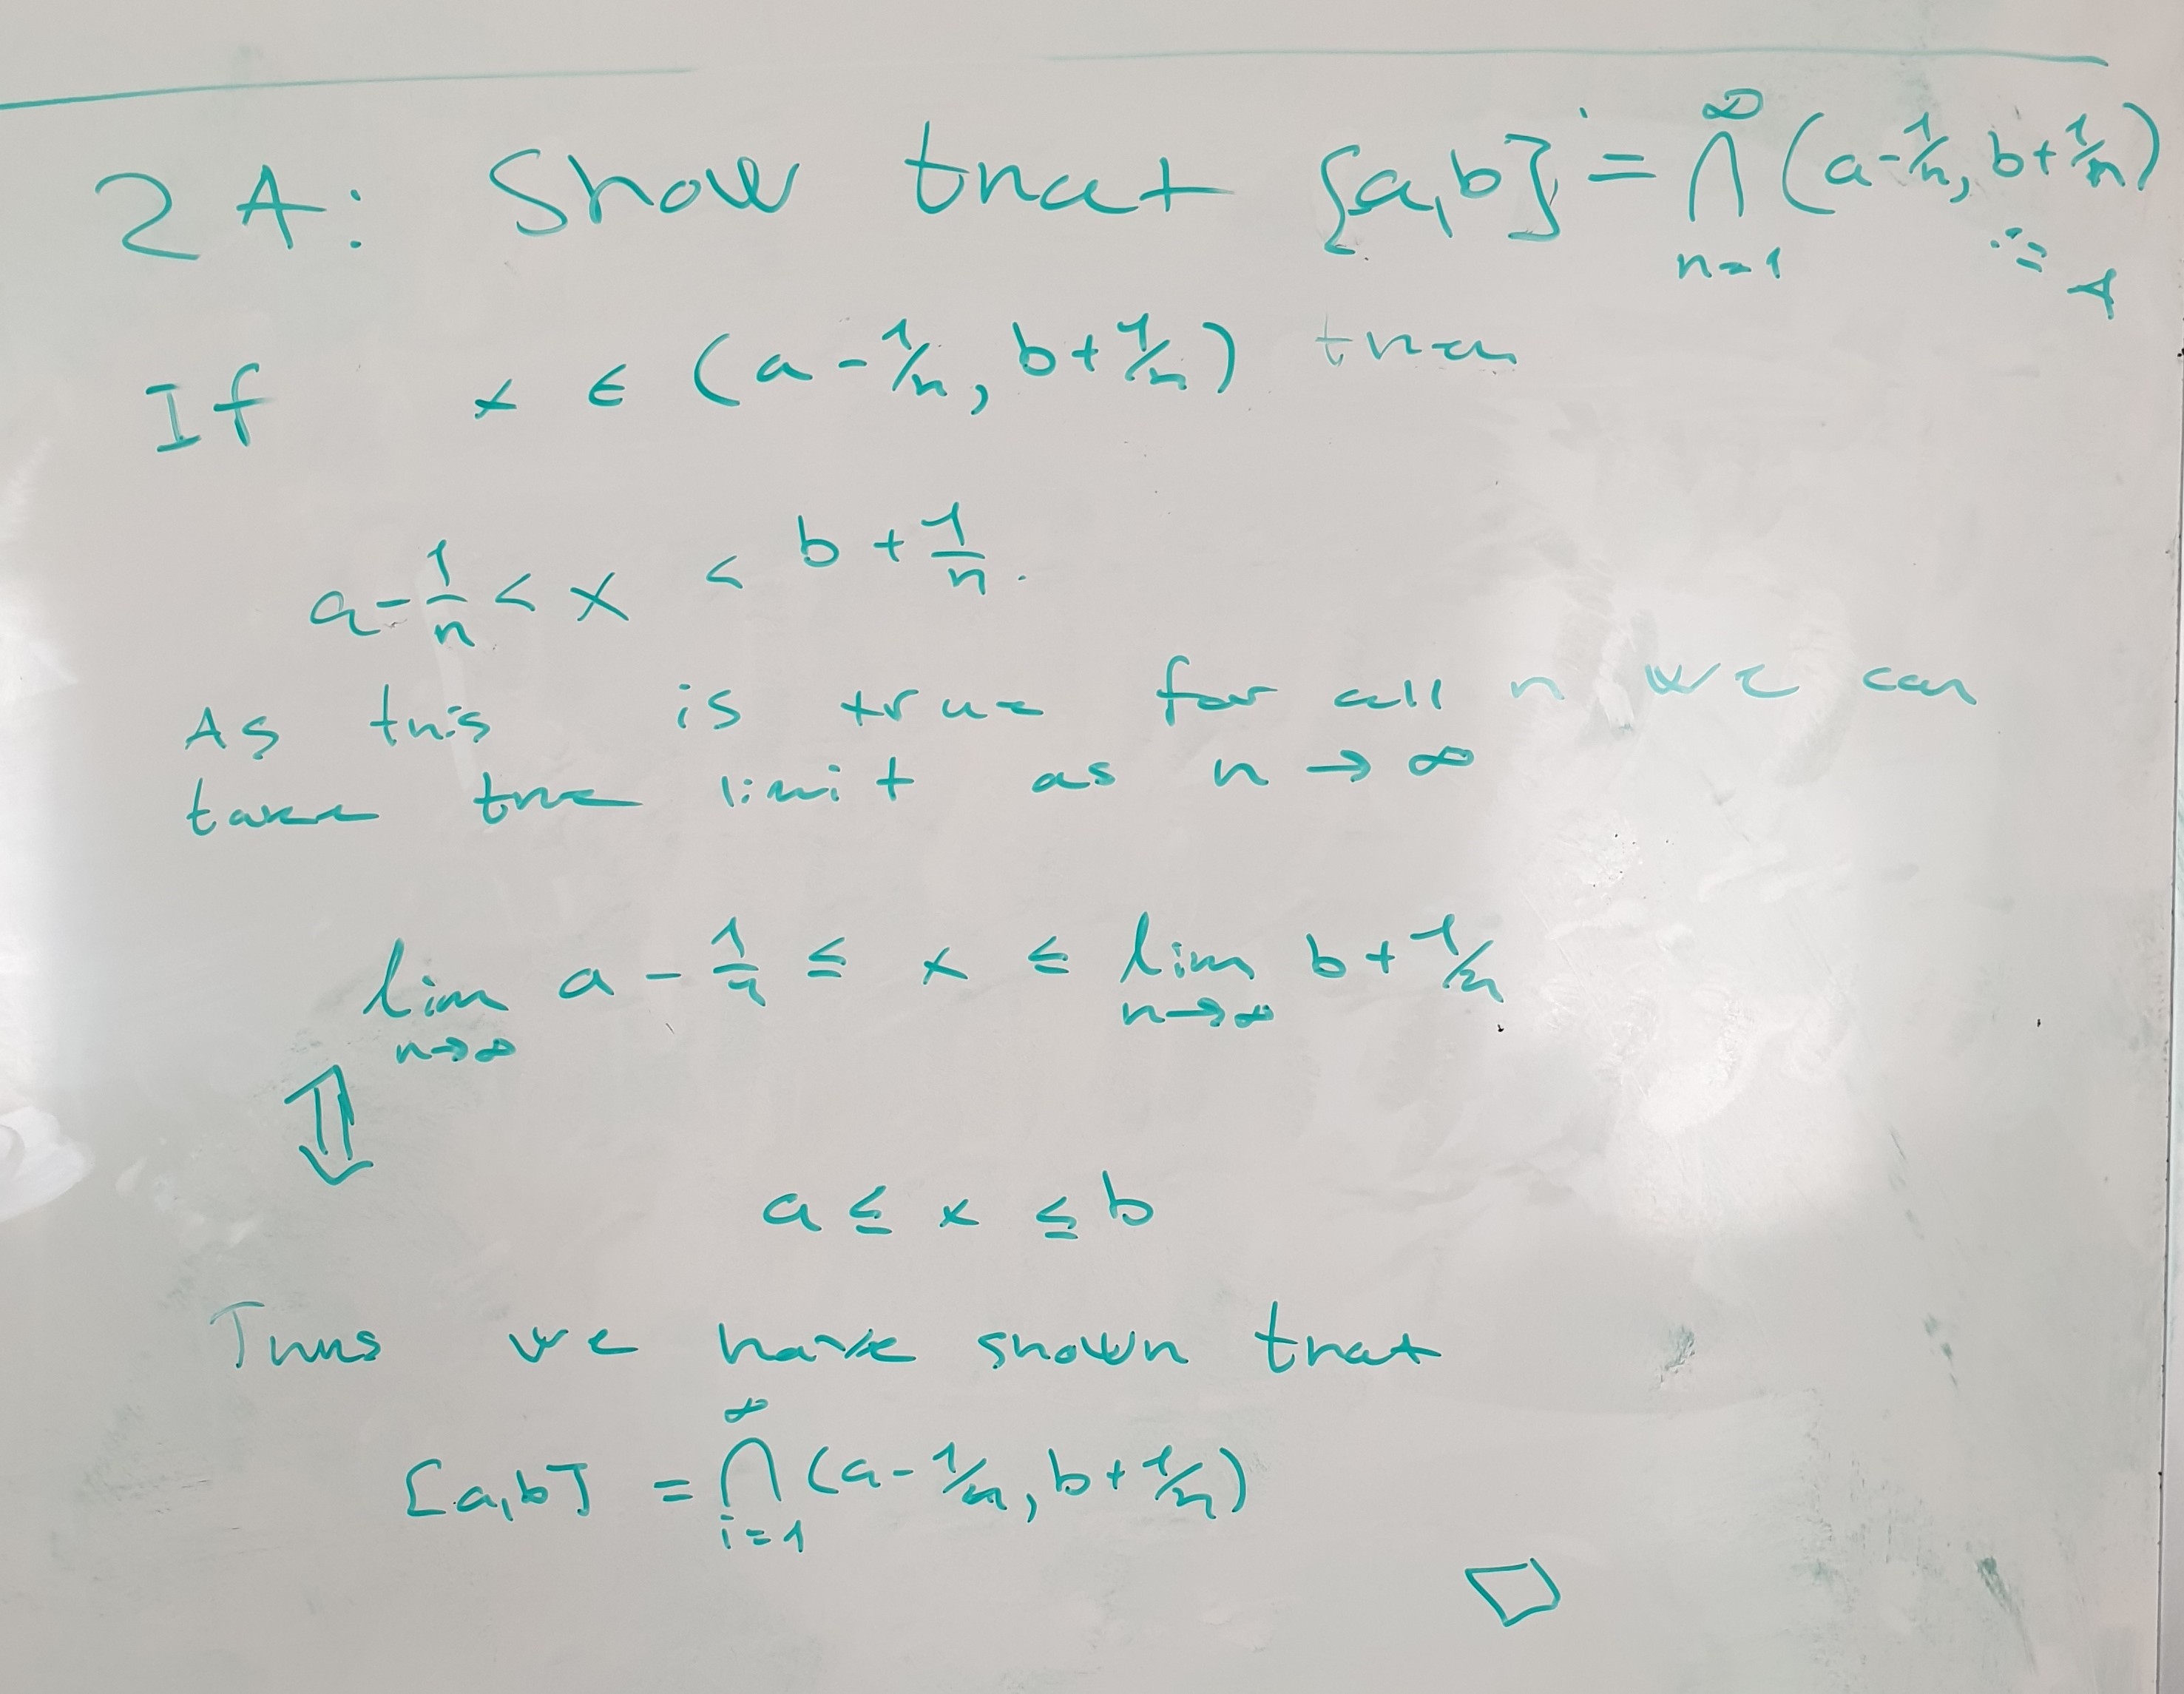 2A: Show that [a,b] = ⋂_{n=1}^{∞} (a-1/n, b+1/n)
:= A
If x ∈ (a-1/n, b+1/n) then
a - 1/n < x < b + 1/n.
As this is true for all n we can
take the limit as n → ∞
lim_{n→∞} a - 1/n ≤ x ≤ lim_{n→∞} b + 1/n
⇕
a ≤ x ≤ b
Thus we have shown that
[a,b] = ⋂_{i=1}^{∞} (a-1/n, b+1/n)
□